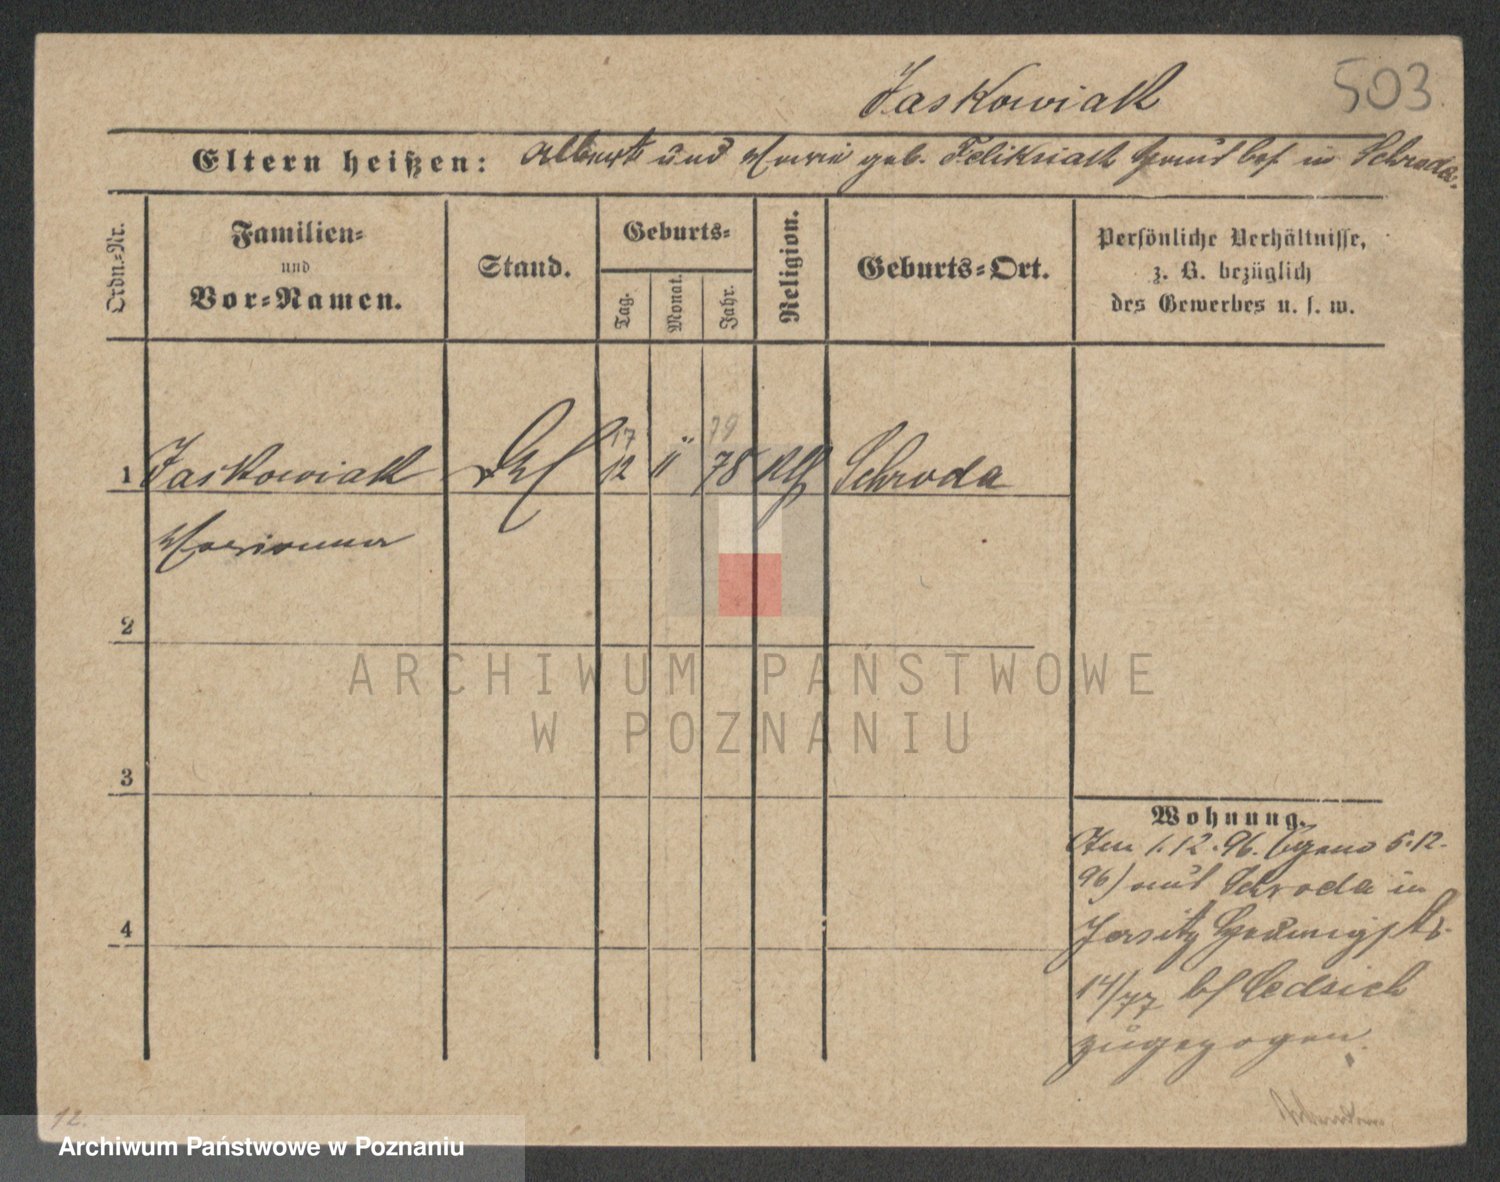 Jaskowiak
503
Eltern heißen: Albert und Marie geb. Feliksiak in Schroda.
Ordn.-Nr.
Familien-
und
Vor-Namen.
Stand.
Geburts-
Tag.
Monat.
Jahr.
Religion.
Geburts-Ort.
Persönliche Verhältnisse,
z. B. bezüglich
des Gewerbes u. s. w.
17 79
1 Jaskowiak 12 11 78 Schroda
Marianna
2
3
4
ARCHIWUM PAŃSTWOWE
W POZNANIU
Wohnung.
Am 1.12.96. 5.12.
96) aus Schroda in
Jersitz
14/77 bei
zugezogen.
12.
Archiwum Państwowe w Poznaniu